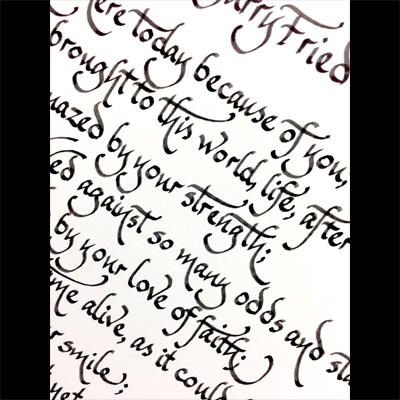 Fried
ere today because of you,
brought to this world, life, after
mazed by your strength;
ed against so many odds and sta
by your love of faith;
me alive, as it could
r smile;
yet